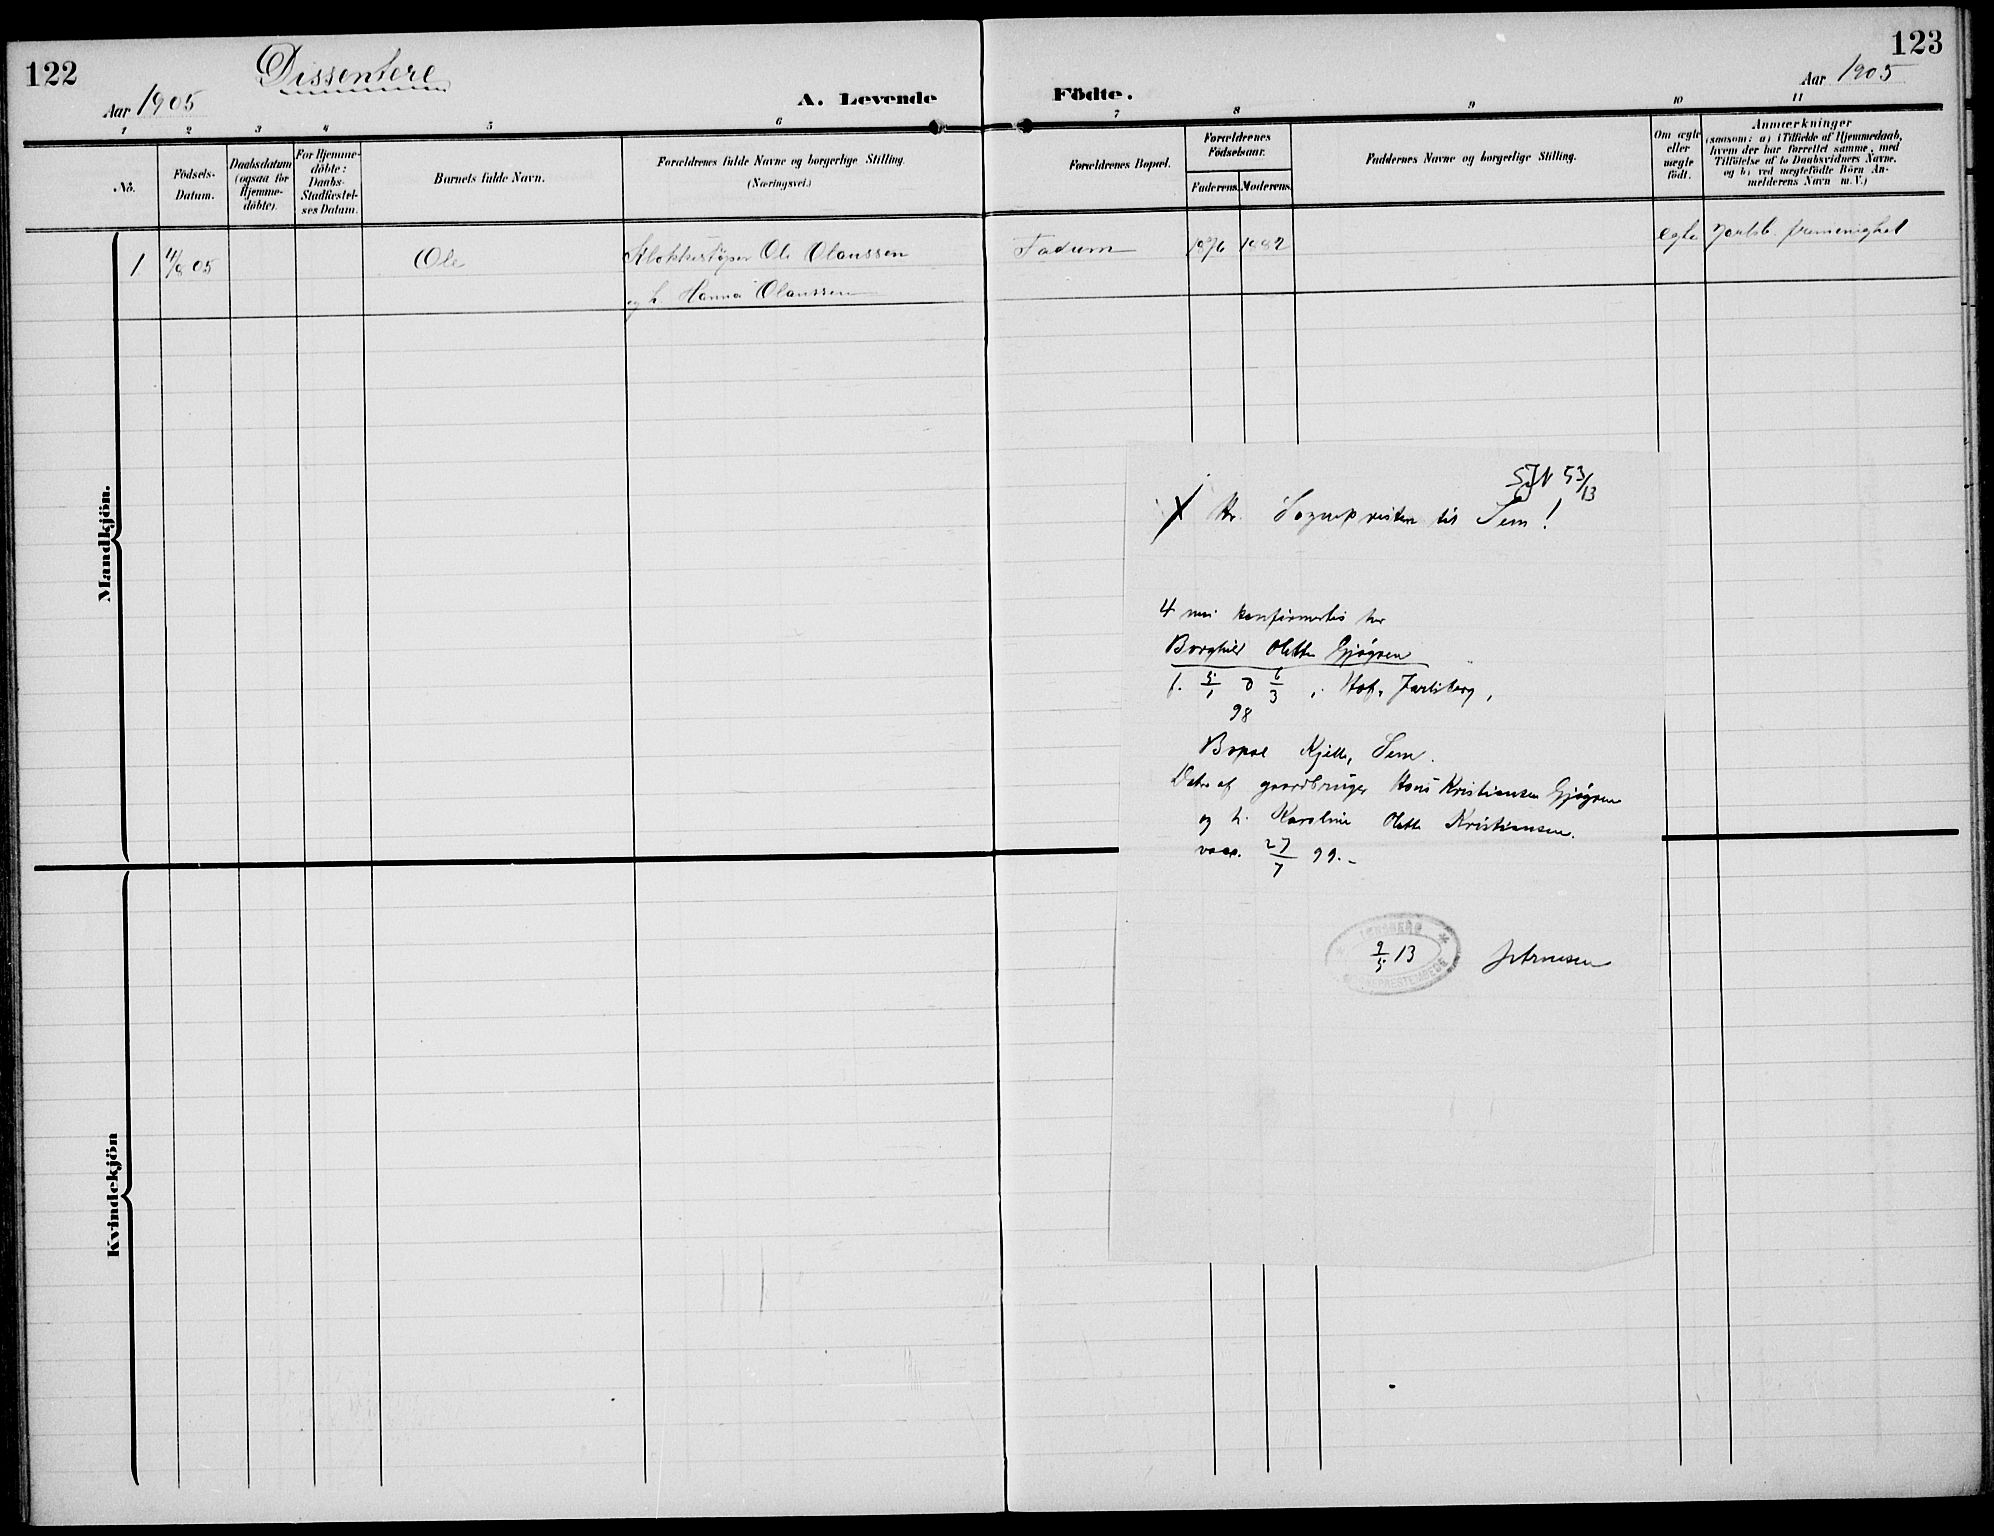 122
Dissentere
Aar 1905
A. Levende
Födte.
123
Aar 1905
1 2 3 4 5 6 7 8 9 10 11
No.
Födsels-
Datum.
Daabsdatum
(ogsaa for
Hjemme-
döbte).
For Hjemme-
döbte:
Daabs-
Stadfæstel-
ses Datum.
Barnets fulde Navn.
Forældrenes fulde Navne og borgerlige Stilling.
(Næringsvei.)
Forældrenes Bopæl.
Forældrenes
Födselsaar.
Faderens.
Moderens.
Faddernes Navne og borgerlige Stilling.
Om ægte
eller
uægte
födt.
Anmærkninger
(saasom: a) i Tilfælde af Hjemmedaab,
hvem der har forrettet samme, med
Tilföielse af to Daabsvidners Navne,
og b) ved uægtefödte Börn An-
melderens Navn m. V.)
Mandkjön.
1 4/8 05 Ole Klokkestöper Ole Olaussen Fadum 1876 1882 egte Jarlsb. frimenighet
og h. Hanna Olaussen
JN 53/13
Hr. Sognepresten til Sem!
4 mai konfirmertes her
Borghild Olette Gjøgren
f. 5/1 d 6/3 98, Hof, Jarlsberg,
Bopæl Kjelle, Sem.
Datter af gaardbruger Hans Kristiansen Gjøgren
og h. Karoline Olette Kristiansen.
vacc. 27/7 99.-
TØNSBERG
9/5 13
SOGNEPRESTEMBEDE
Kvindekjön